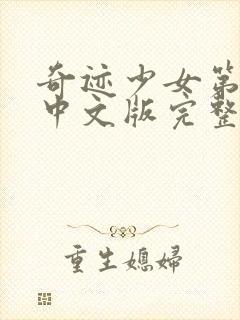 奇迹少女第
中文版完整
重生媳婦